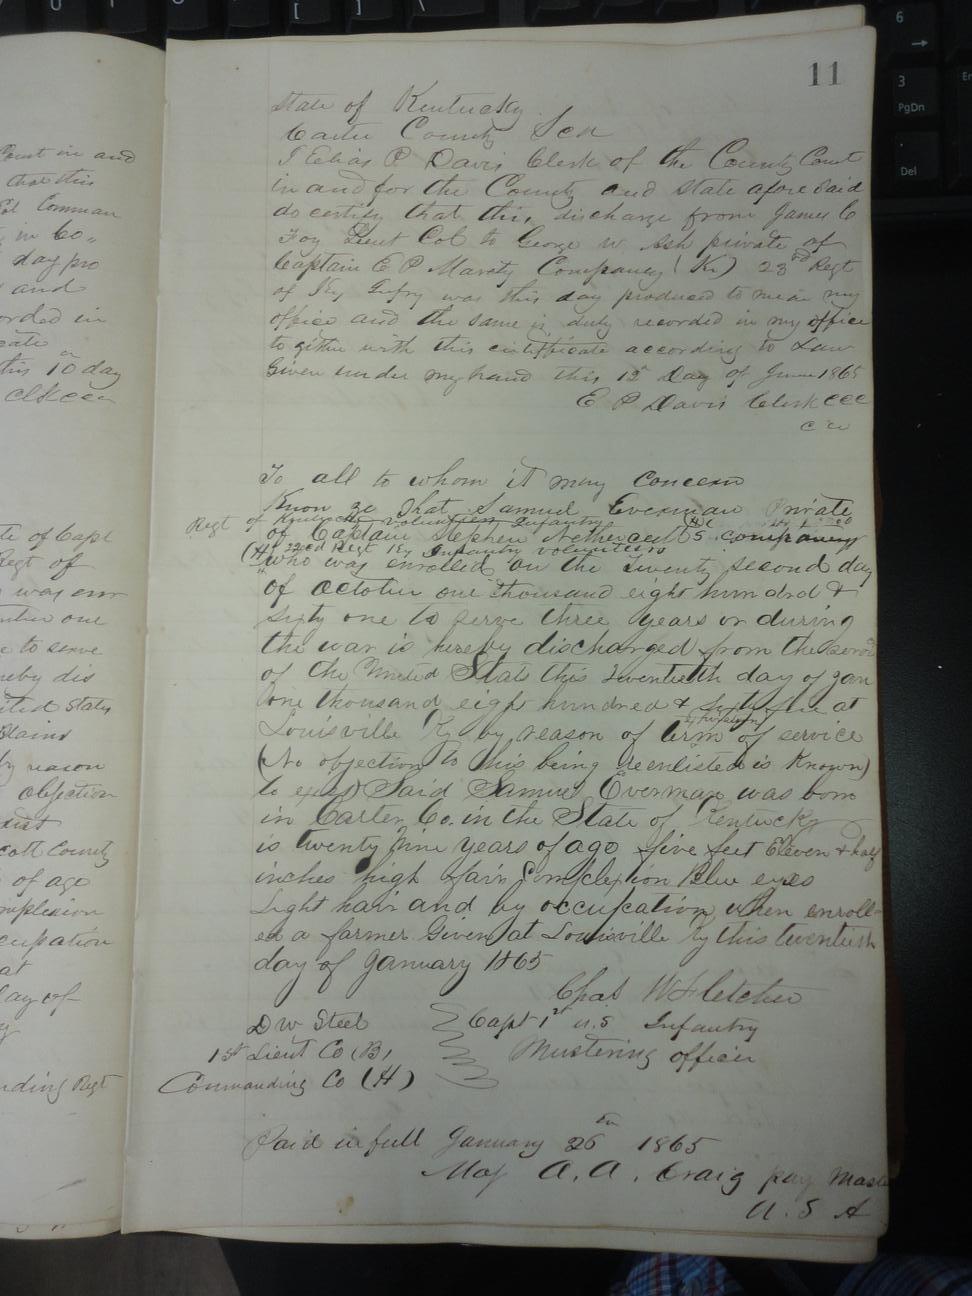 11
State of Kentucky
Carter County Sct
I Elias P Davis Clerk of the County Court
in and for the County and State afore Said
do certify that this discharge from James C
Foy Lieut Col to George W Ash private of
Captain E P Company (K) 23rd Regt
of Ky Infry was this day produced to me in my
office and the same is duly recorded in my office
to gether with this certificate according to Law
Given under my hand this 12 Day of June 1865
E P Davis Clerk CCC
To all to whom it may concern
Know ye That Samuel Everman Private
Regt of Kentucky volunteer Infantry
of Captain Stephen company
(H) 22nd Regt Ky Infantry volunteers
who was enrolled on the Twenty second day
of October one thousand eight hundred &
sixty one to serve three years or during
the war is hereby discharged from the
of the United Stats this twentieth day of Jan
one thousand eight hundred & at
expiration
Louisville Ky by reason of term of service
(No objection to his being reenlisted is Known)
to exist) Said Samuel Everman was born
in Carter Co. in the State of Kentucky
is twenty Nine years of age five feet Eleven & half
inches high fair Complexion Blue eyes
Light hair and by occupation, when enroll-
ed a farmer Given at Louisville Ky this twentieth
day of January 1865
Chas W Fletcher
D W Steel Capt 1st U.S Infantry
1st Lieut Co (B) Mustering officer
Commanding Co (H)
Paid in full January 26th 1865
Maj A. A. Craig pay Mast
U. S A
Court in and
that this
Col Comman
in Co,,
day pro
and
orded in
cate
this 10 day
Clk ccc
te of Capt
Regt of
was enr
one
to serve
eby dis
ited States
by reason
objection
cott County
of age
mplexion
cupation
at
day of
nding Regt
6
3
PgDn
Del